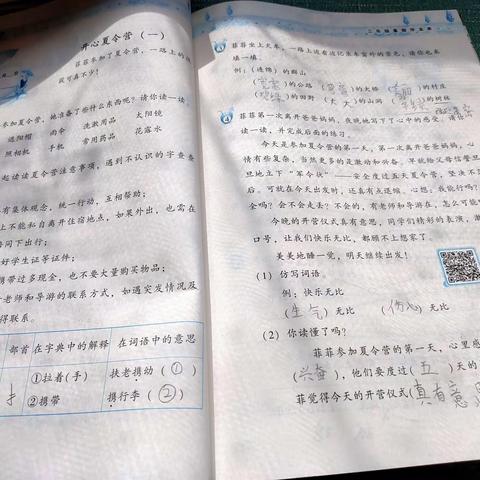 开心夏令营（一）
菲菲参加了夏令营，一路上的
参加夏令营，她准备了些什么东西呢？请你读一读。
遮阳帽 雨伞 洗漱用品 太阳镜
照相机 手机 常用药品 花露水
读读夏令营注意事项，遇到不认识的字查查
有集体观念，统一行动，互相帮助；
上不能私自离开住宿地点，如果外出，也需在
陪同下出行；
好学生证等证件；
携带过多现金，也不要大量购买物品；
老师和导游的联系方式，如遇突发情况及
得联系。
部首 在字典中的解释 在词语中的意思
扌 ①拉着(手) 扶老携幼（①）
②携带 携行李（②）
菲菲坐上火车，一路上还有
填一填。
例：（连绵）的群山
的公路 的大桥 （美丽）的村庄
的田野 （大大）的山洞 的树林
菲菲第一次离开爸爸妈妈，我晚她写下了心中的感受。请你
读一读，并完成后面的练习。
今天是参加夏令营的第一天，第一次离开爸爸妈妈，心
情有些复杂，当然更多的是激动和兴奋。
旦地上下“军令状”——安全度过五天夏令营，坚决不
后。可能在今天出发时，还真有点迷糊，心想：我能行吗？
全吗？会不会走丢？不会的，有老师和导游在，怎么可能
今晚的开营仪式真有意思，同学们精彩的表演，
口号，让我们快乐无比，都顾不上想家了。
美美地睡一觉，明天继续出发！
（1）仿写词语。
例：快乐无比
（生气）无比 （伤心）无比
（2）你读懂了吗？
菲菲参加夏令营的第一天，心里感
（兴奋），他们要度过（五）天的
菲觉得今天的开营仪式（真有意思